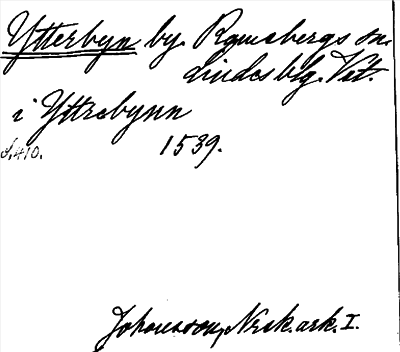 Ytterbyn by Ramsbergs sn.
Lindesbg. Vst.
i Yttrebynn
s. 410. 1539.
Johansson, Nzsk. ark. I.